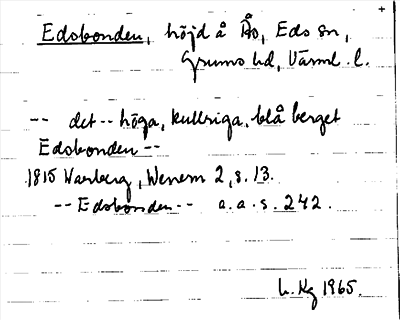 +
Edsbonden, höjd å Ås, Eds sn,
Grums hd, Värml. l.
-- det -- höga, kullriga, blå berget
Edsbonden --
1815 Warberg, Wenern 2, s. 13.
-- Edsbonden -- a.a. s. 242.
L. Kg 1965.